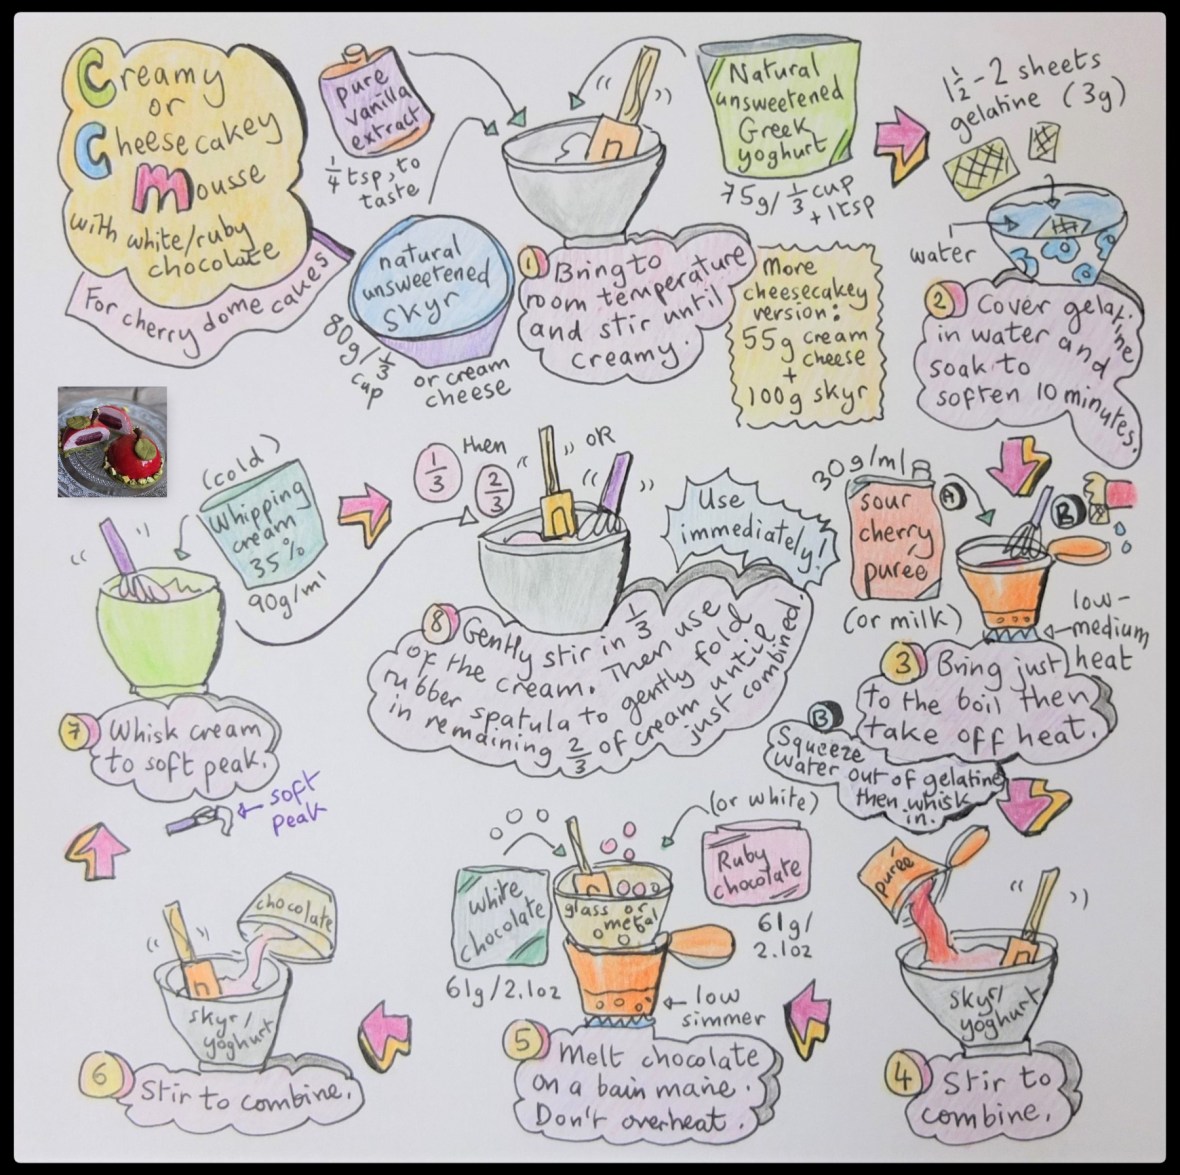 Creamy
or
Cheesecakey
Mousse
with white/ruby
chocolate
For cherry dome cakes
pure
vanilla
extract
1/4 tsp, to
taste
natural
unsweetened
skyr
80g/1/3
cup
or cream
cheese
Natural
unsweetened
Greek
yoghurt
75g/1/3 cup
+ 1 tsp
1 Bring to
room temperature
and stir until
creamy.
More
cheesecakey
version:
55g cream
cheese
+
100g skyr
1 1/2 - 2 sheets
gelatine (3g)
water
2 Cover gelatine
in water and
soak to
soften 10 minutes.
30g/ml
sour
cherry
purée
(or milk)
A
B
low-
medium
heat
3 Bring just
to the boil then
take off heat.
B
Squeeze
water out of gelatine
then whisk
in.
purée
skyr/
yoghurt
4 Stir to
combine.
white
chocolate
61g/2.1oz
(or white)
Ruby
chocolate
61g/
2.1oz
glass or
metal
low
simmer
5 Melt chocolate
on a bain marie.
Don't overheat.
chocolate
skyr/
yoghurt
6 Stir to combine.
(cold)
Whipping
cream
35%
90g/ml
7 Whisk cream
to soft peak.
soft
peak
1/3
then
2/3
OR
Use
immediately!
8 Gently stir in 1/3
of the cream. Then use
rubber spatula to gently fold
in remaining 2/3 of cream until
just combined.